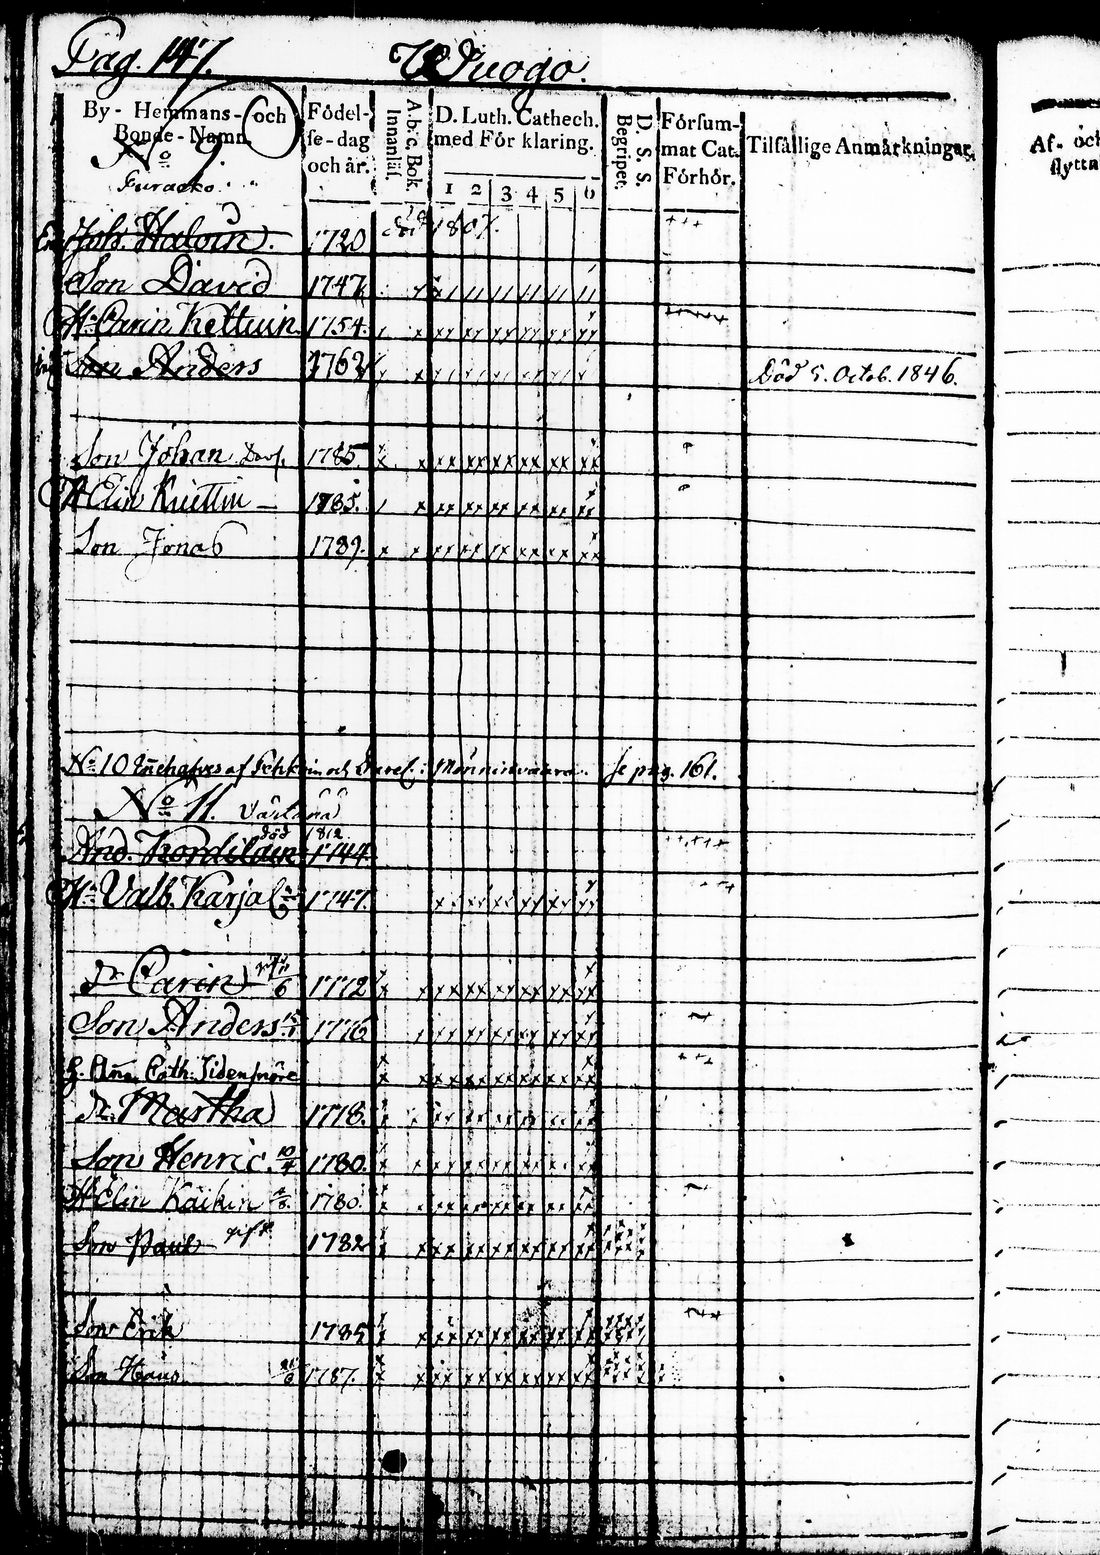 Pag. 147. Wuogo.
By- Hemmans- och Bonde-Namn.
Fódel-se-dag och år.
A.b.c. Bok. Innanläs.
D. Luth. Cathech. med Fór klaring.
1 2 3 4 5 6
D. S. S. Begripet.
Fórsum-mat Cat. Fórhór.
Tilfállige Anmárkningar.
Af- och
flytta
No 9.
Joh. Haloin. 1720 död 1807.
Son David 1747
Hu Carin Kettuin 1754.
Son Anders 1762 Död 5. Octob. 1846.
Son Johan 1785
H Elin 1785.
Son Jonas 1789.
No 10 se pag. 161.
No 11.
död 1812
And. 1744
Hu Valb. Karjal 1747.
Dr Carin 6 1772
Son Anders 1776
Dr. Martha 1778.
Son Henric. 10/4 1780.
Hu Elin Kaikin 1780.
Son Paul gift 1782
Son Erik 1785
Son Hans 1787.